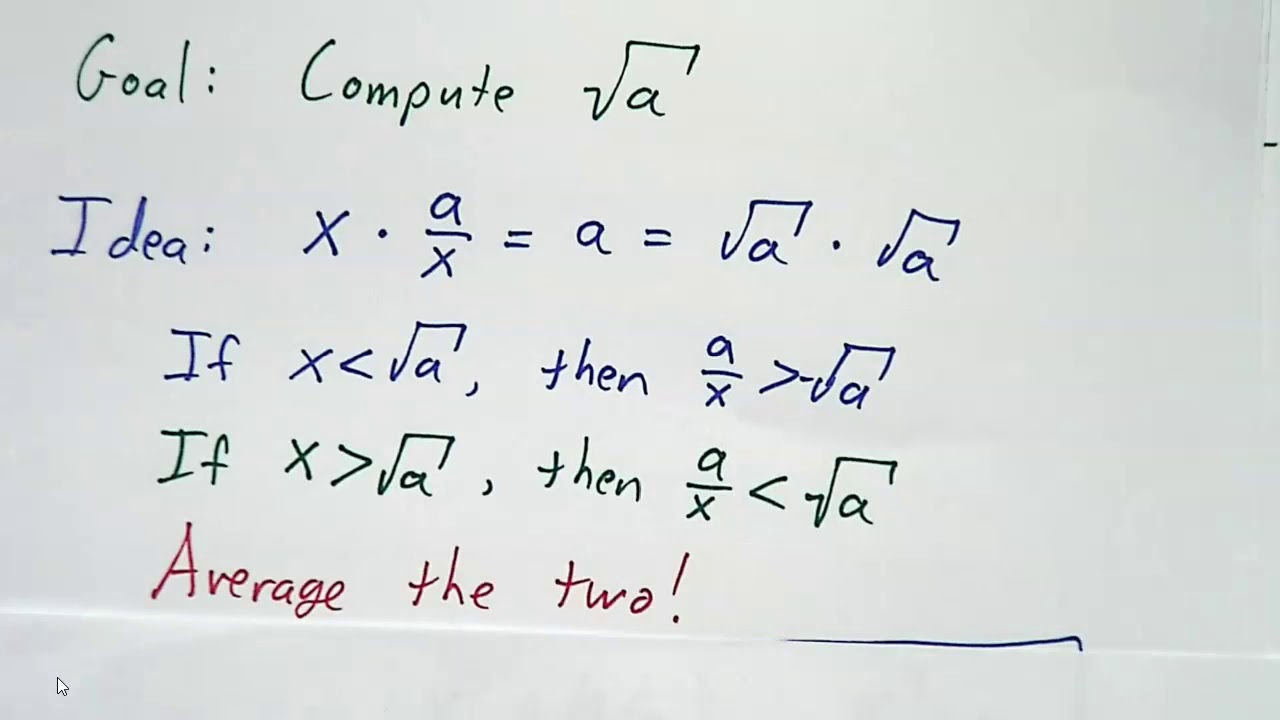 Goal: Compute √a
Idea: x · a/x = a = √a · √a
If x < √a, then a/x > √a
If x > √a, then a/x < √a
Average the two!